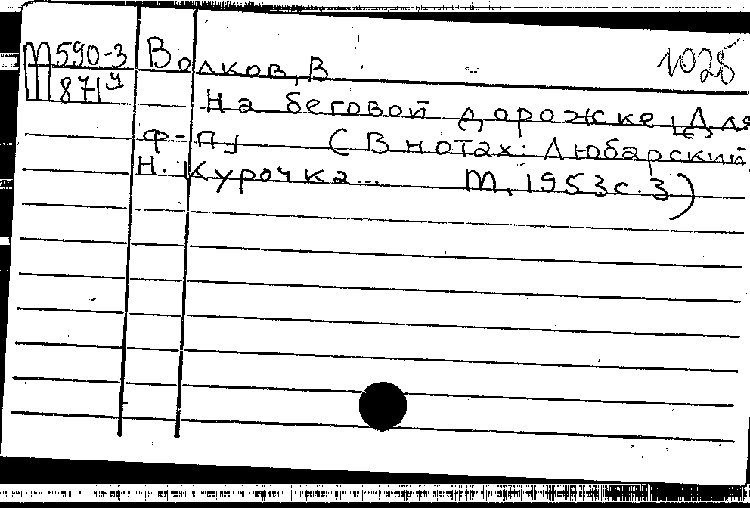 М590-3 Волков, В 1025
Ш871ч
На беговой дорожке [Для
ф-п.] (В нотах: Любарский,
Н. Курочка... М, 1953 с. 3)